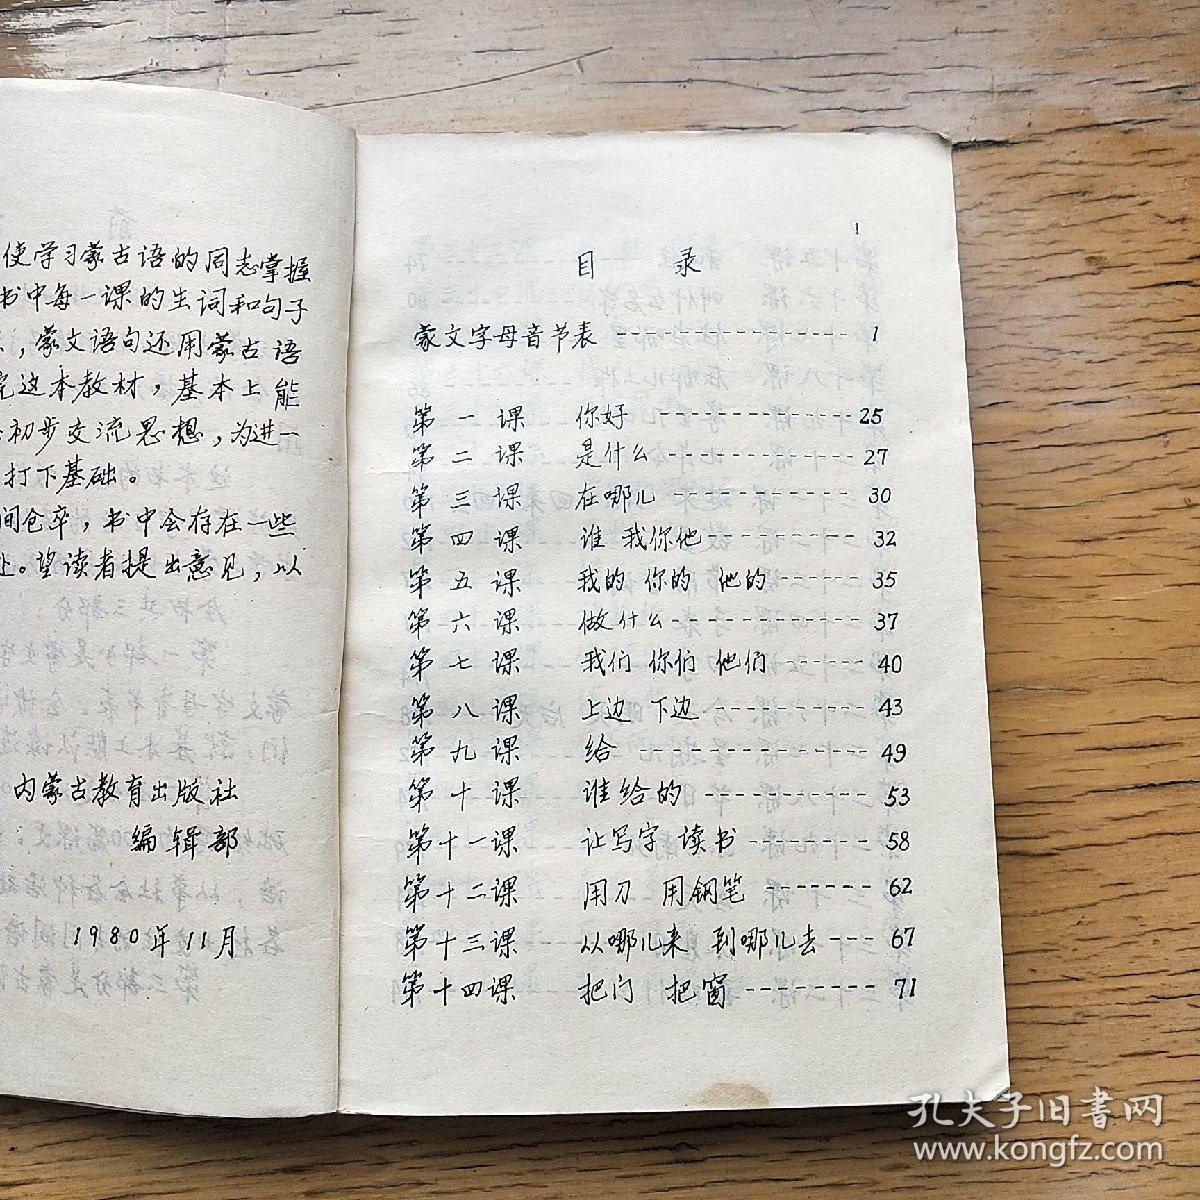 使学习蒙古语的同志掌握
书中每一课的生词和句子
，蒙文语句还用蒙古语
完这本教材，基本上能
初步交流思想，为进一
打下基础。
间仓卒，书中会存在一些
处。望读者提出意见，以
内蒙古教育出版社
编辑部
1980年11月
1
目 录
蒙文字母音节表 ---------------- 1
第一课 你好 ------------- 25
第二课 是什么 ------------ 27
第三课 在哪儿 ------------ 30
第四课 谁 我你他 --------- 32
第五课 我的 你的 他的 ------ 35
第六课 做什么 ------------ 37
第七课 我们 你们 他们 ------ 40
第八课 上边 下边 ---------- 43
第九课 给 --------------- 49
第十课 谁给的 ----------- 53
第十一课 让写字 读书 -------- 58
第十二课 用刀 用钢笔 ------- 62
第十三课 从哪儿来 到哪儿去 --- 67
第十四课 把门 把窗 -------- 71
孔夫子旧书网
www.kongfz.com